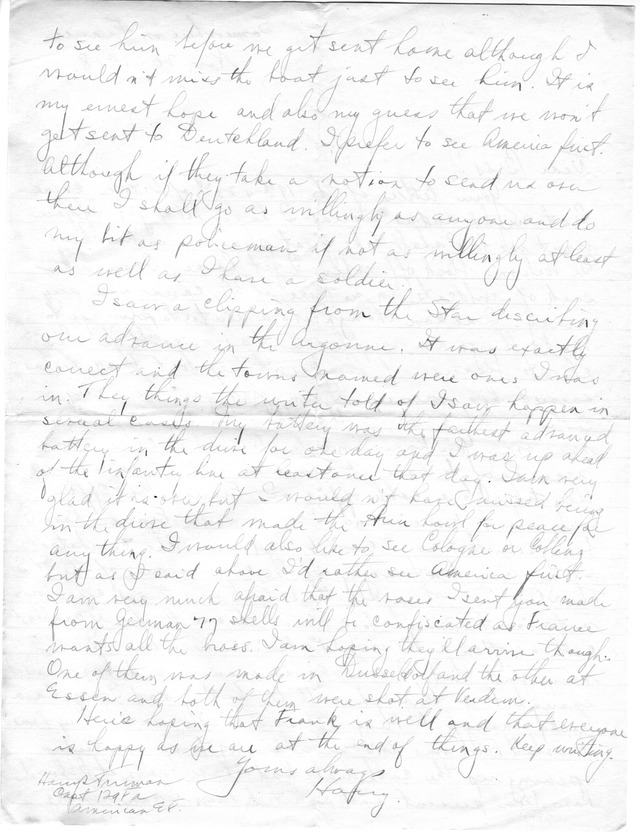 to see him before we get sent home although I
wouldn't miss the boat just to see him. It is
my ernest hope and also my guess that we won't
get sent to Deutchland. I prefer to see America first.
Although if they take a notion to send us over
there I shall go as willingly as anyone and do
my bit as policeman if not as willingly at least
as well as I have a soldier.
I saw a clipping from the Star describing
our advance in the Argonne. It was exactly
correct and the towns named were ones I was
in. They things the writer told of I saw happen in
several cases. My battery was the farthest advanced
battery in the drive for one day and I was up ahead
of the infantry line at least once that day. I am very
glad it is over but I wouldn't have missed being
in the drive that made the Hun howl for peace for
anything. I would also like to see Cologne or Coblenz
but as I said above I'd rather see America first.
I am very much afraid that the vases I sent you made
from German 77 shells will be confiscated as France
wants all the brass. I am hoping they'll arrive though.
One of them was made in Dusseldorf and the other at
Essen and both of them were shot at Verdun.
Here's hoping that Frank is well and that everyone
is happy as we are at the end of things. Keep writing.
Yours always
Harry.
Harry S Truman
Capt 129 F A
American E.F.